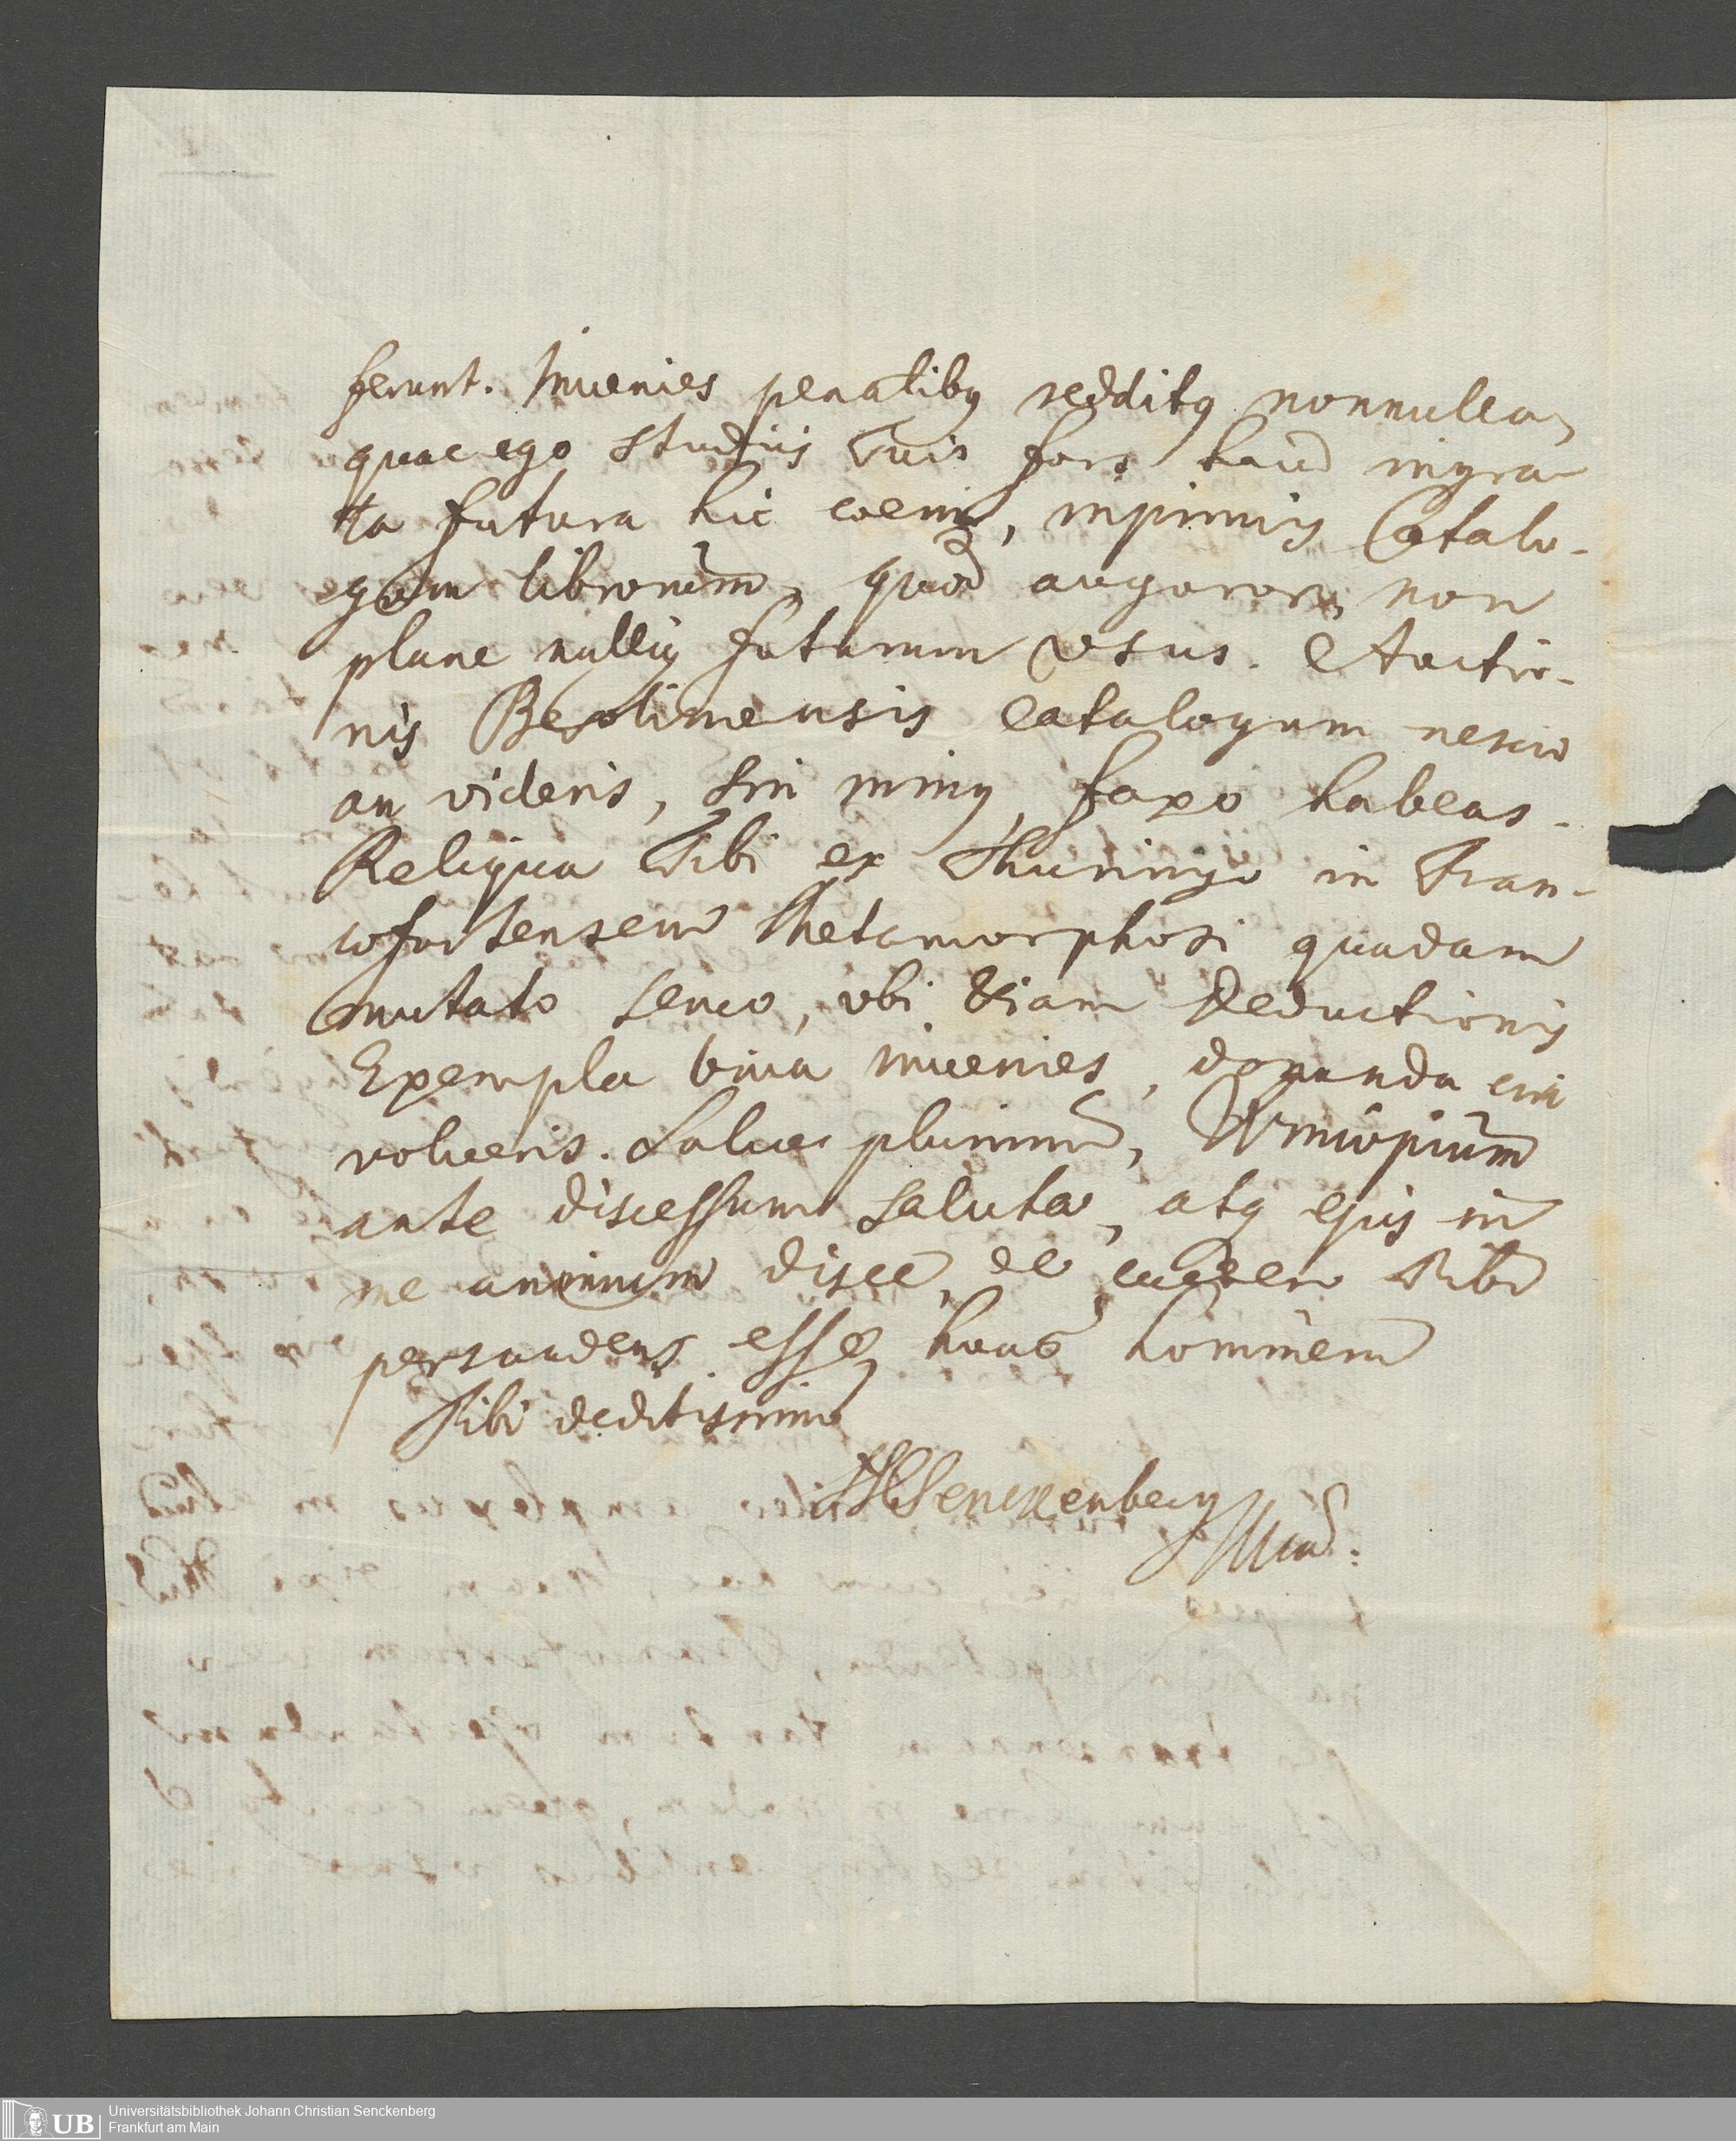 ferunt. Invenies penatibꝫ redditꝫ nonnulla,
quae ego studiis Tuis fors haud ingra-
ta futura hic coemi, inprimis Catalo-
gum librorum, quod auguror, non
plane nullius futurum usus. Auctio-
nis Berolinensis Catalogum nescio
an videris, sin minꝫ, faxo habeas.
Reliqua Tibi ex Thuringo in Fran-
cofurtensem Metamorphosi quadam
mutato servo, ubi etiam Deductionis
Exempla bina invenies, donanda cui
volueris. Salve plurimum,
ante discessum saluta, atqꝫ ejus in
me animum disce, de Tibi
persuadens esse hunc hominem
Tibi deditissimum
HCSenckenberg